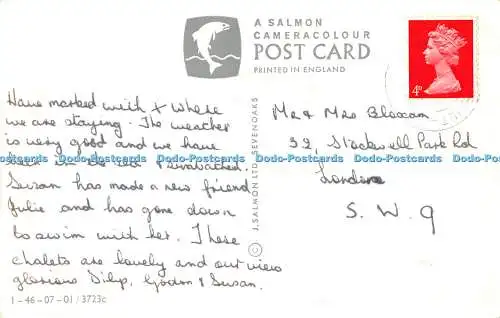 A SALMON
CAMERACOLOUR
POST CARD
PRINTED IN ENGLAND
4D
Have marked with X where
we are staying. The weather
is very good and we have
been in the sea
Dodo-Postcards Dodo-Postcards Dodo-Postcards Dodo-Postcards Dodo-Postcards
Susan has made a new friend
Julie and has gone down
to swim with her. These
chalets are lovely and our view
glorious Dilys, Gordon & Susan.
1-46-07-01/3723c
© J. SALMON LTD., SEVENOAKS
Mr & Mrs Bloxam
32, Stockwell Park Rd
London
S. W. 9